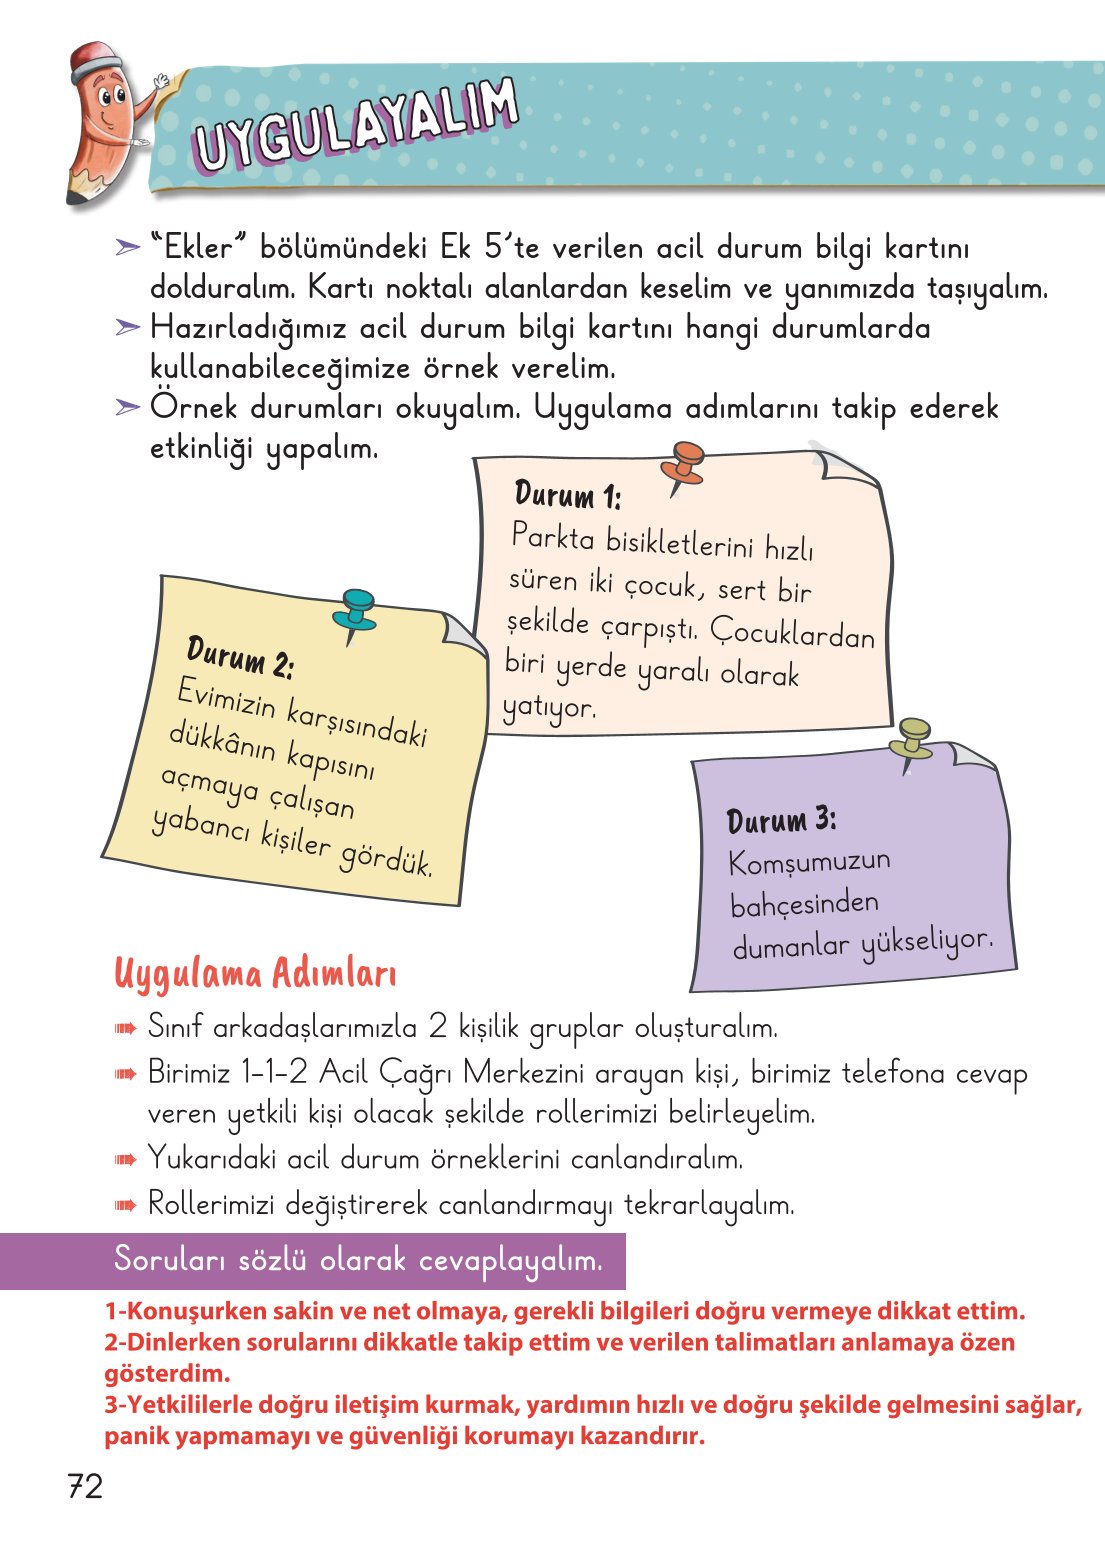 UYGULAYALIM
➣ “Ekler” bölümündeki Ek 5’te verilen acil durum bilgi kartını
dolduralım. Kartı noktalı alanlardan keselim ve yanımızda taşıyalım.
➣ Hazırladığımız acil durum bilgi kartını hangi durumlarda
kullanabileceğimize örnek verelim.
➣ Örnek durumları okuyalım. Uygulama adımlarını takip ederek
etkinliği yapalım.
Durum 1:
Parkta bisikletlerini hızlı
süren iki çocuk, sert bir
şekilde çarpıştı. Çocuklardan
biri yerde yaralı olarak
yatıyor.
Durum 2:
Evimizin karşısındaki
dükkânın kapısını
açmaya çalışan
yabancı kişiler gördük.
Durum 3:
Komşumuzun
bahçesinden
dumanlar yükseliyor.
Uygulama Adımları
Sınıf arkadaşlarımızla 2 kişilik gruplar oluşturalım.
Birimiz 1-1-2 Acil Çağrı Merkezini arayan kişi, birimiz telefona cevap
veren yetkili kişi olacak şekilde rollerimizi belirleyelim.
Yukarıdaki acil durum örneklerini canlandıralım.
Rollerimizi değiştirerek canlandırmayı tekrarlayalım.
Soruları sözlü olarak cevaplayalım.
1-Konuşurken sakin ve net olmaya, gerekli bilgileri doğru vermeye dikkat ettim.
2-Dinlerken sorularını dikkatle takip ettim ve verilen talimatları anlamaya özen
gösterdim.
3-Yetkililerle doğru iletişim kurmak, yardımın hızlı ve doğru şekilde gelmesini sağlar,
panik yapmamayı ve güvenliği korumayı kazandırır.
72